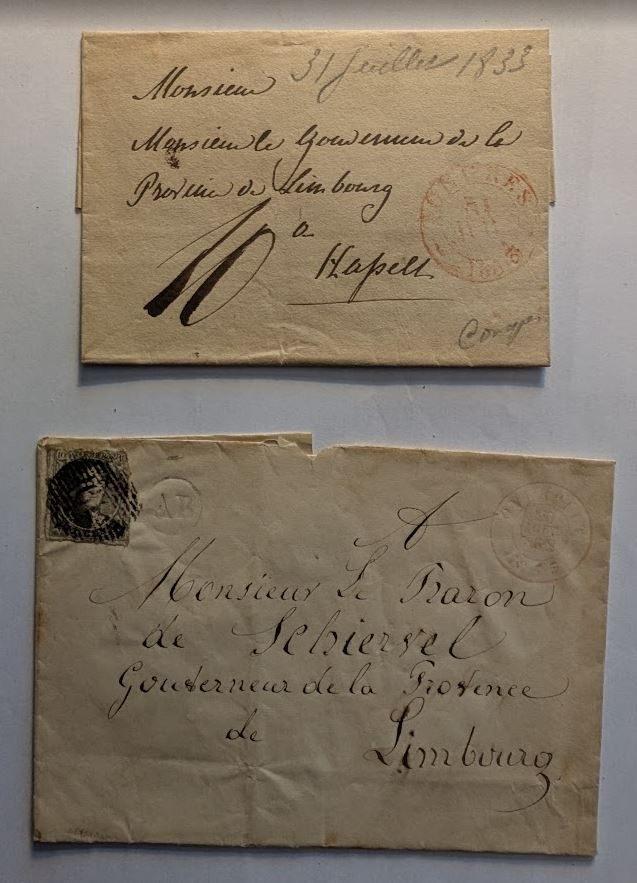 31 Juillet 1833
Monsieur
Monsieur le Gouverneur de la
Province de Limbourg
à
Hasselt
10
TONGRES
31
AB
A
Monsieur Le Baron
de Schiervel
Gouverneur de la Province
de Limbourg